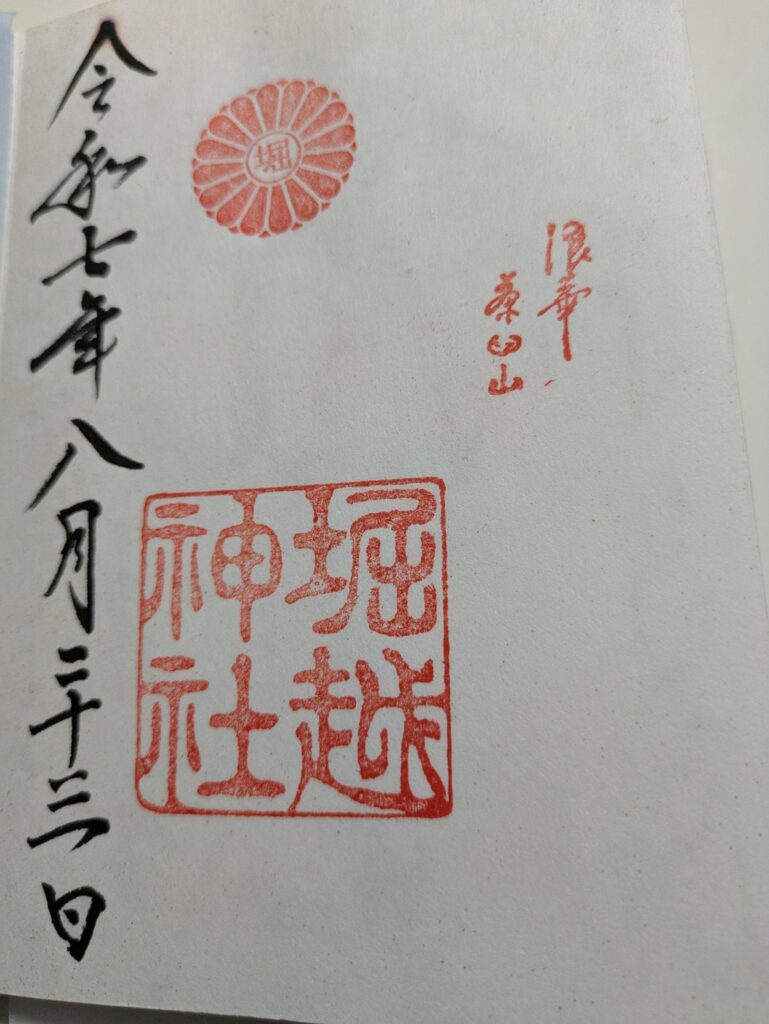 浪華
茶臼山
堀
堀越
神社
令和七年八月二十三日